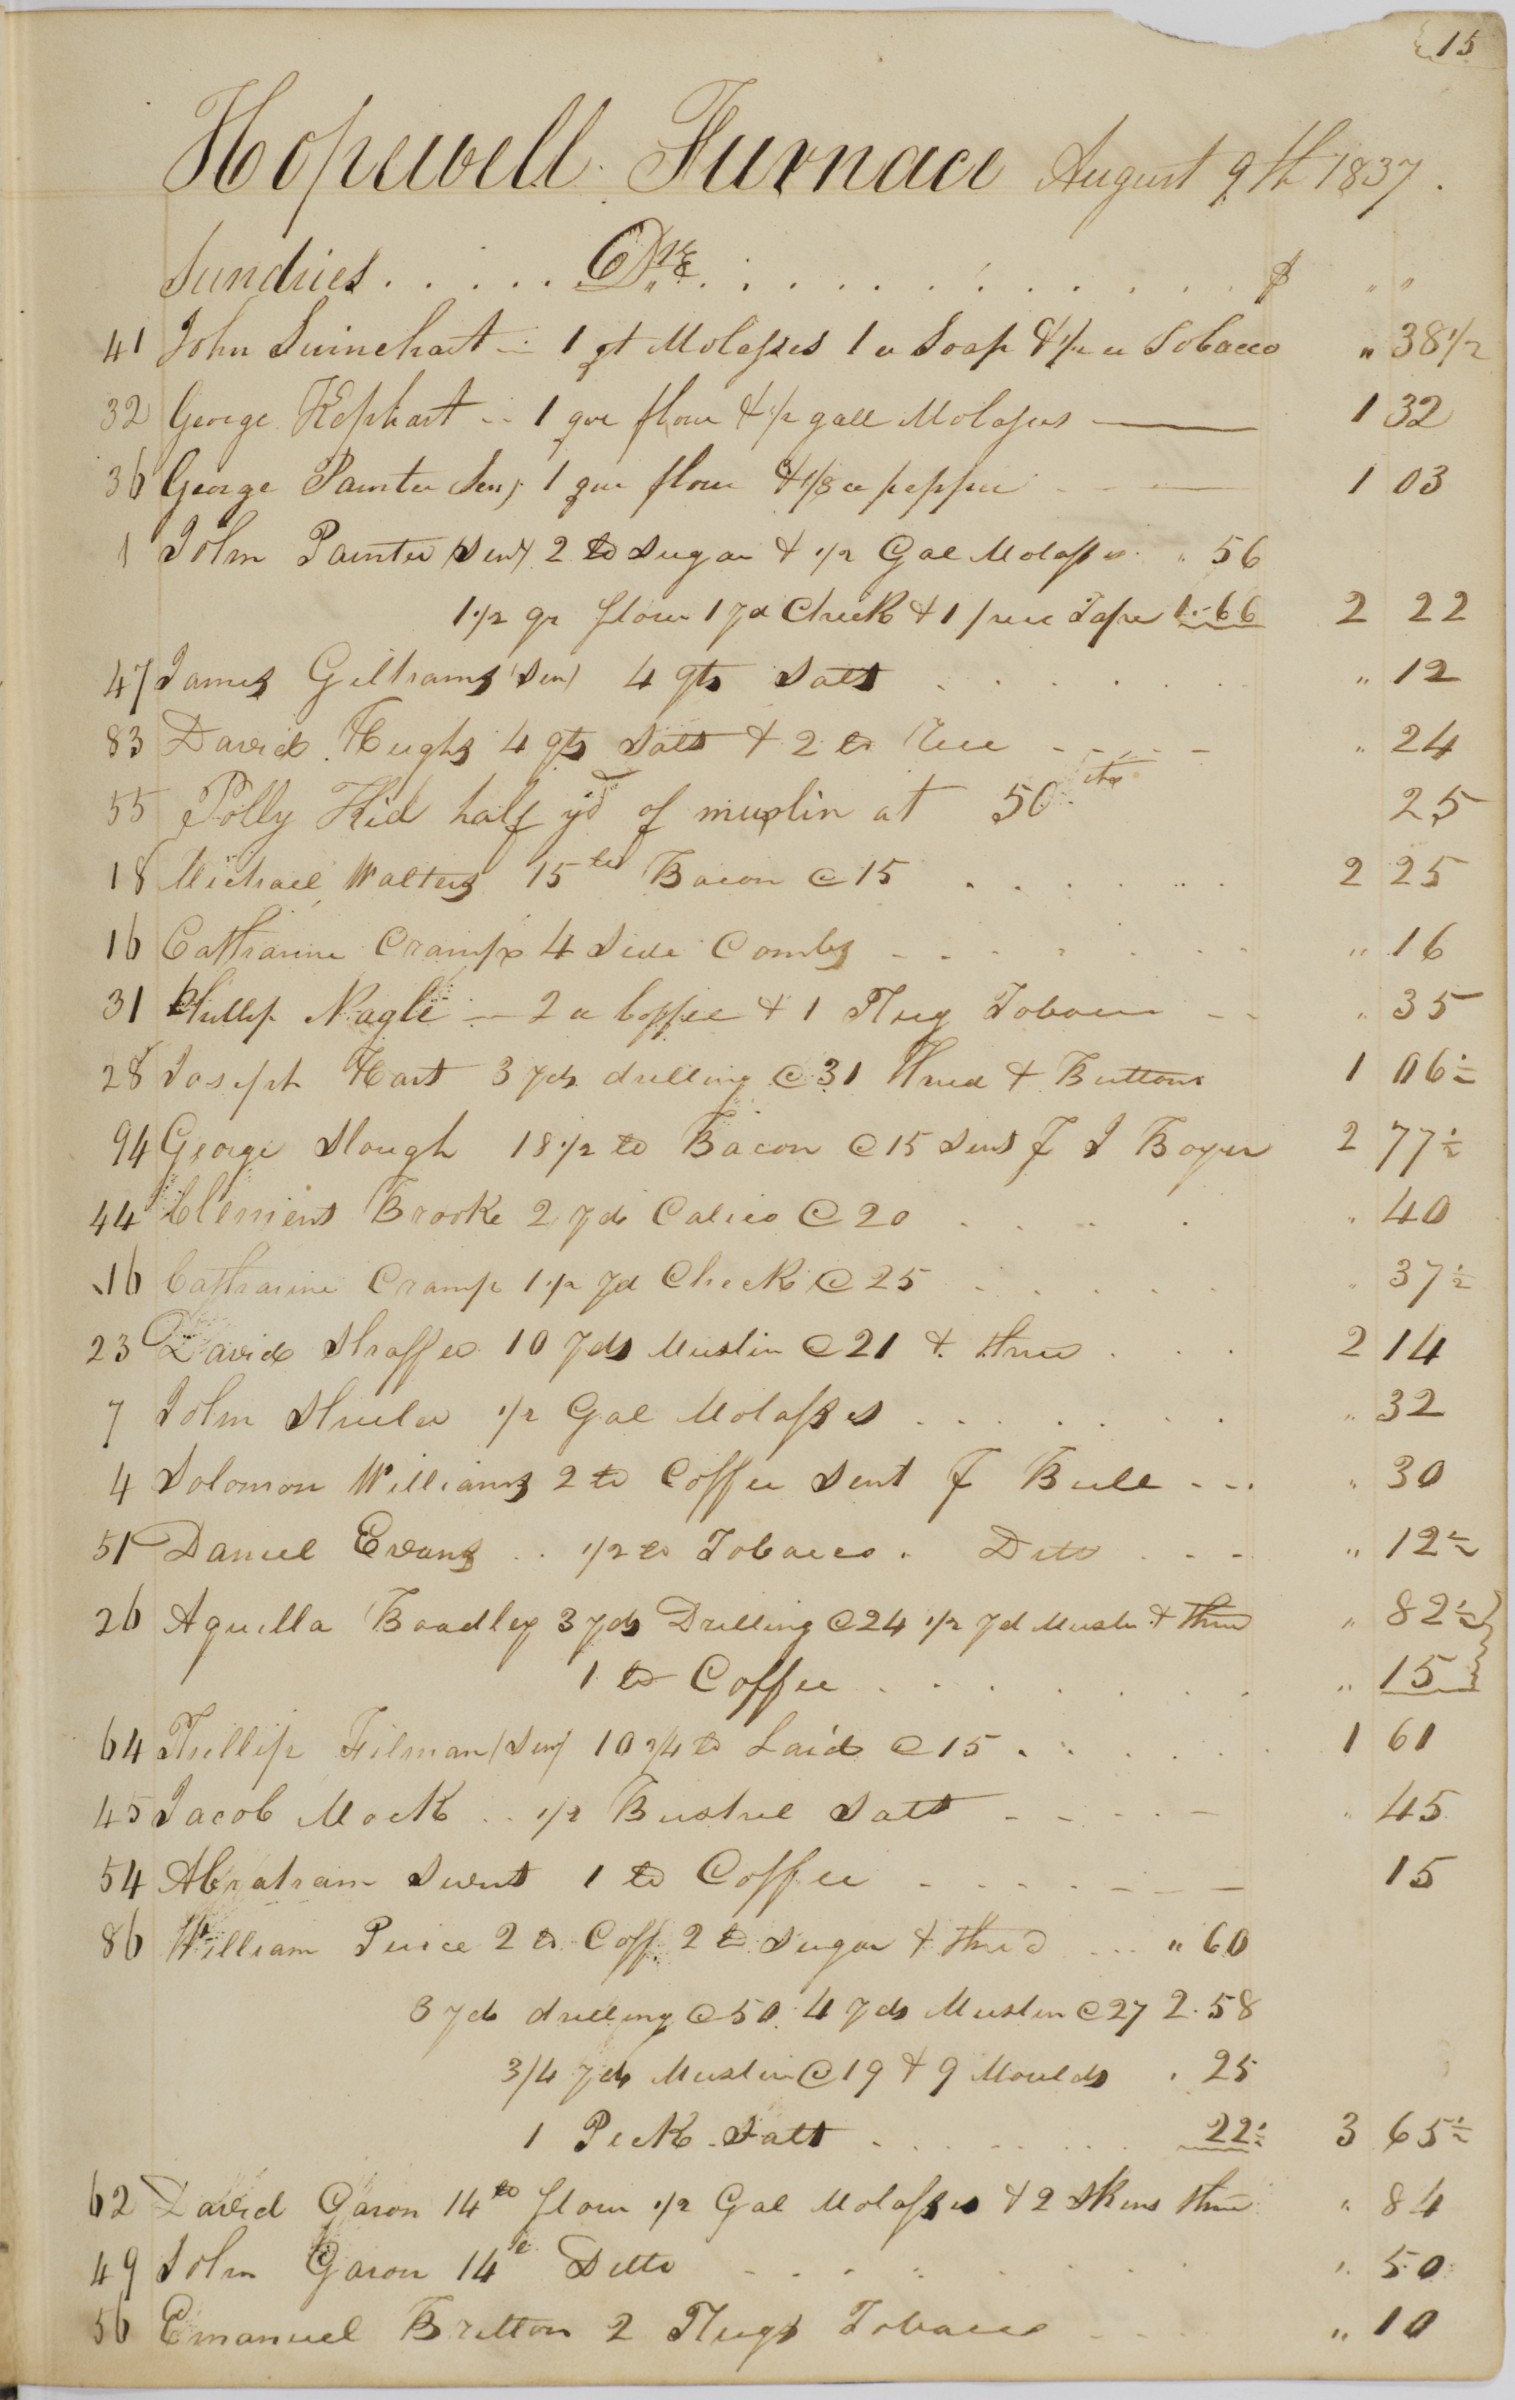 15
Hopewell Furnace August 9th 1837.
Sundries . . . . . Drs . . . . . . . . . . $ " "
41 John Swinehart - 1 qt Molasses 1 lb Soap & 1/2 lb Tobacco " 38 1/2
32 George Kephart - 1 qur flour & 1/2 gall Molasses 1 32
36 George Painter Senr 1 qur flour & 1/8 lb pepper 1 03
1 John Painter (Senr) 2 lb Sugar & 1/2 Gal Molasses " 56
1 1/2 qr flour 1 yd Check & 1 piece Tape 1.66 2 22
47 James Gilhams (Sen) 4 qts Salt " 12
83 David Hughs 4 qts Salt & 2 lb Rice " 24
55 Polly Kid half yd of muslin at 50 cts 25
18 Michael Walters 15 lbs Bacon @ 15 2 25
16 Catharine Cramp 4 Side Combs " 16
31 Phillip Nagle - 2 lb Coffee & 1 Plug Tobacco " 35
28 Joseph Hart 3 yds drilling @ 31 Thred & Buttons 1 06 1/2
94 George Slough 18 1/2 lb Bacon @ 15 Sent F J Boyer 2 77 1/2
44 Clement Brooke 2 yds Calico @ 20 " 40
16 Catharine Cramp 1 1/2 yd Check @ 25 " 37 1/2
23 David Shaffer 10 yds Muslin @ 21 & thred 2 14
7 John Sheeler 1/2 Gal Molasses " 32
4 Solomon Williams 2 lb Coffee Sent F Bull " 30
51 Daniel Evans 1/2 lb Tobacco . Ditto " 12 1/2
26 Aquilla Boadley 3 yds Drilling @ 24 1/2 yd Muslin & thred " 82 1/2
1 lb Coffee " 15
64 Phillip Filman (Sen) 10 3/4 lb Laid @ 15 1 61
45 Jacob Mock 1/2 Bushel Salt " 45
54 Abraham Swent 1 lb Coffee 15
86 William Price 2 lb Coff. 2 lb Sugar & thred " 60
3 yds drilling @ 50 4 yds Muslin @ 27 2.58
3/4 yds Muslin @ 19 & 9 Moulds . 25
1 Peck Salt 22 1/2 3 65 1/2
62 David Garon 14 lb flour 1/2 Gal Molasses & 2 Skeins thred " 84
49 John Garon 14 lb Ditto " 50
56 Emanuel Britton 2 Plugs Tobacco " 10